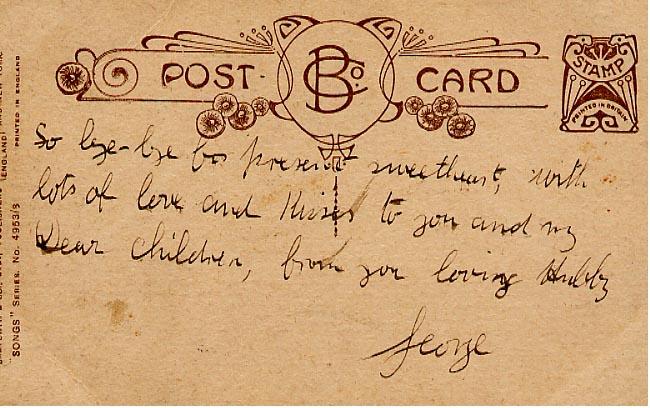 POST CARD
B Co.
STAMP
PRINTED IN BRITAIN
So bye-bye for present sweetheart, with
lots of love and Kisses to you and my
Dear Children, from you loving Hubby
George
"SONGS" SERIES. No. 4953/3
ENGLAND)
PRINTED IN ENGLAND